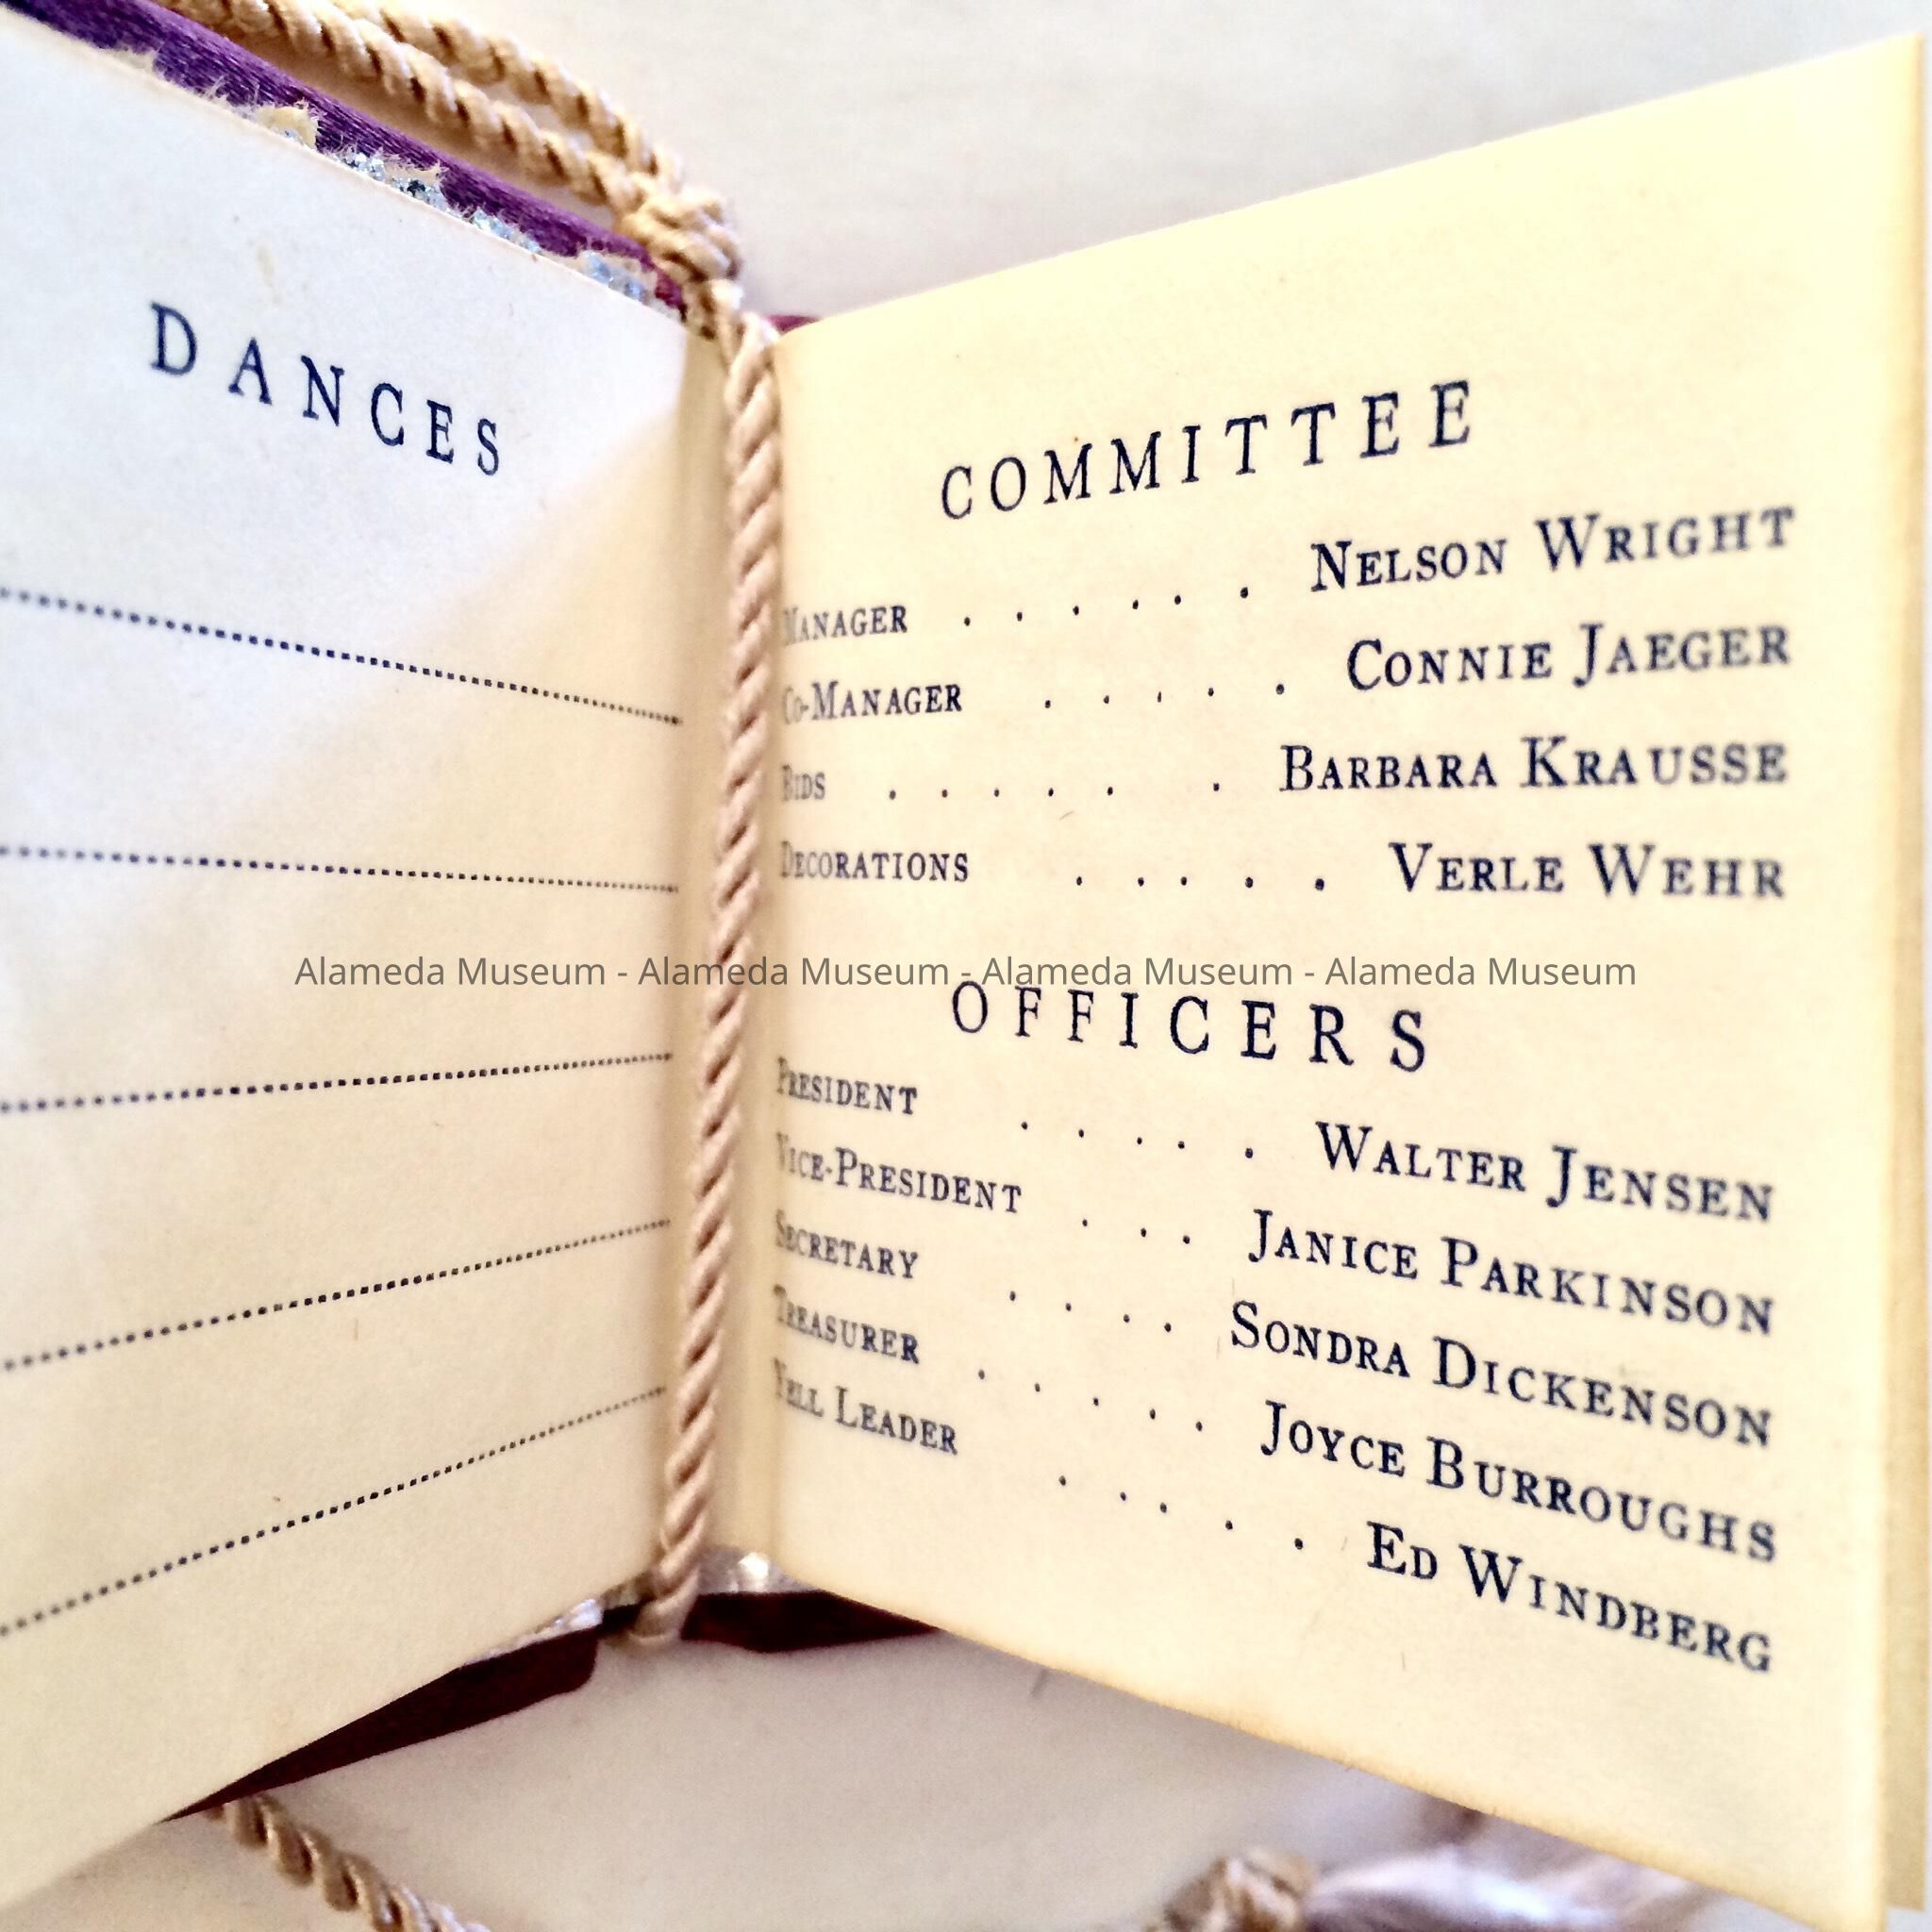 DANCES
COMMITTEE
MANAGER . . . . . . NELSON WRIGHT
CO-MANAGER . . . . . CONNIE JAEGER
BIDS . . . . . . BARBARA KRAUSSE
DECORATIONS . . . . . VERLE WEHR
Alameda Museum - Alameda Museum - Alameda Museum - Alameda Museum
OFFICERS
PRESIDENT . . . . . WALTER JENSEN
VICE-PRESIDENT . . . JANICE PARKINSON
SECRETARY . . . . SONDRA DICKENSON
TREASURER . . . . . JOYCE BURROUGHS
YELL LEADER . . . . . ED WINDBERG